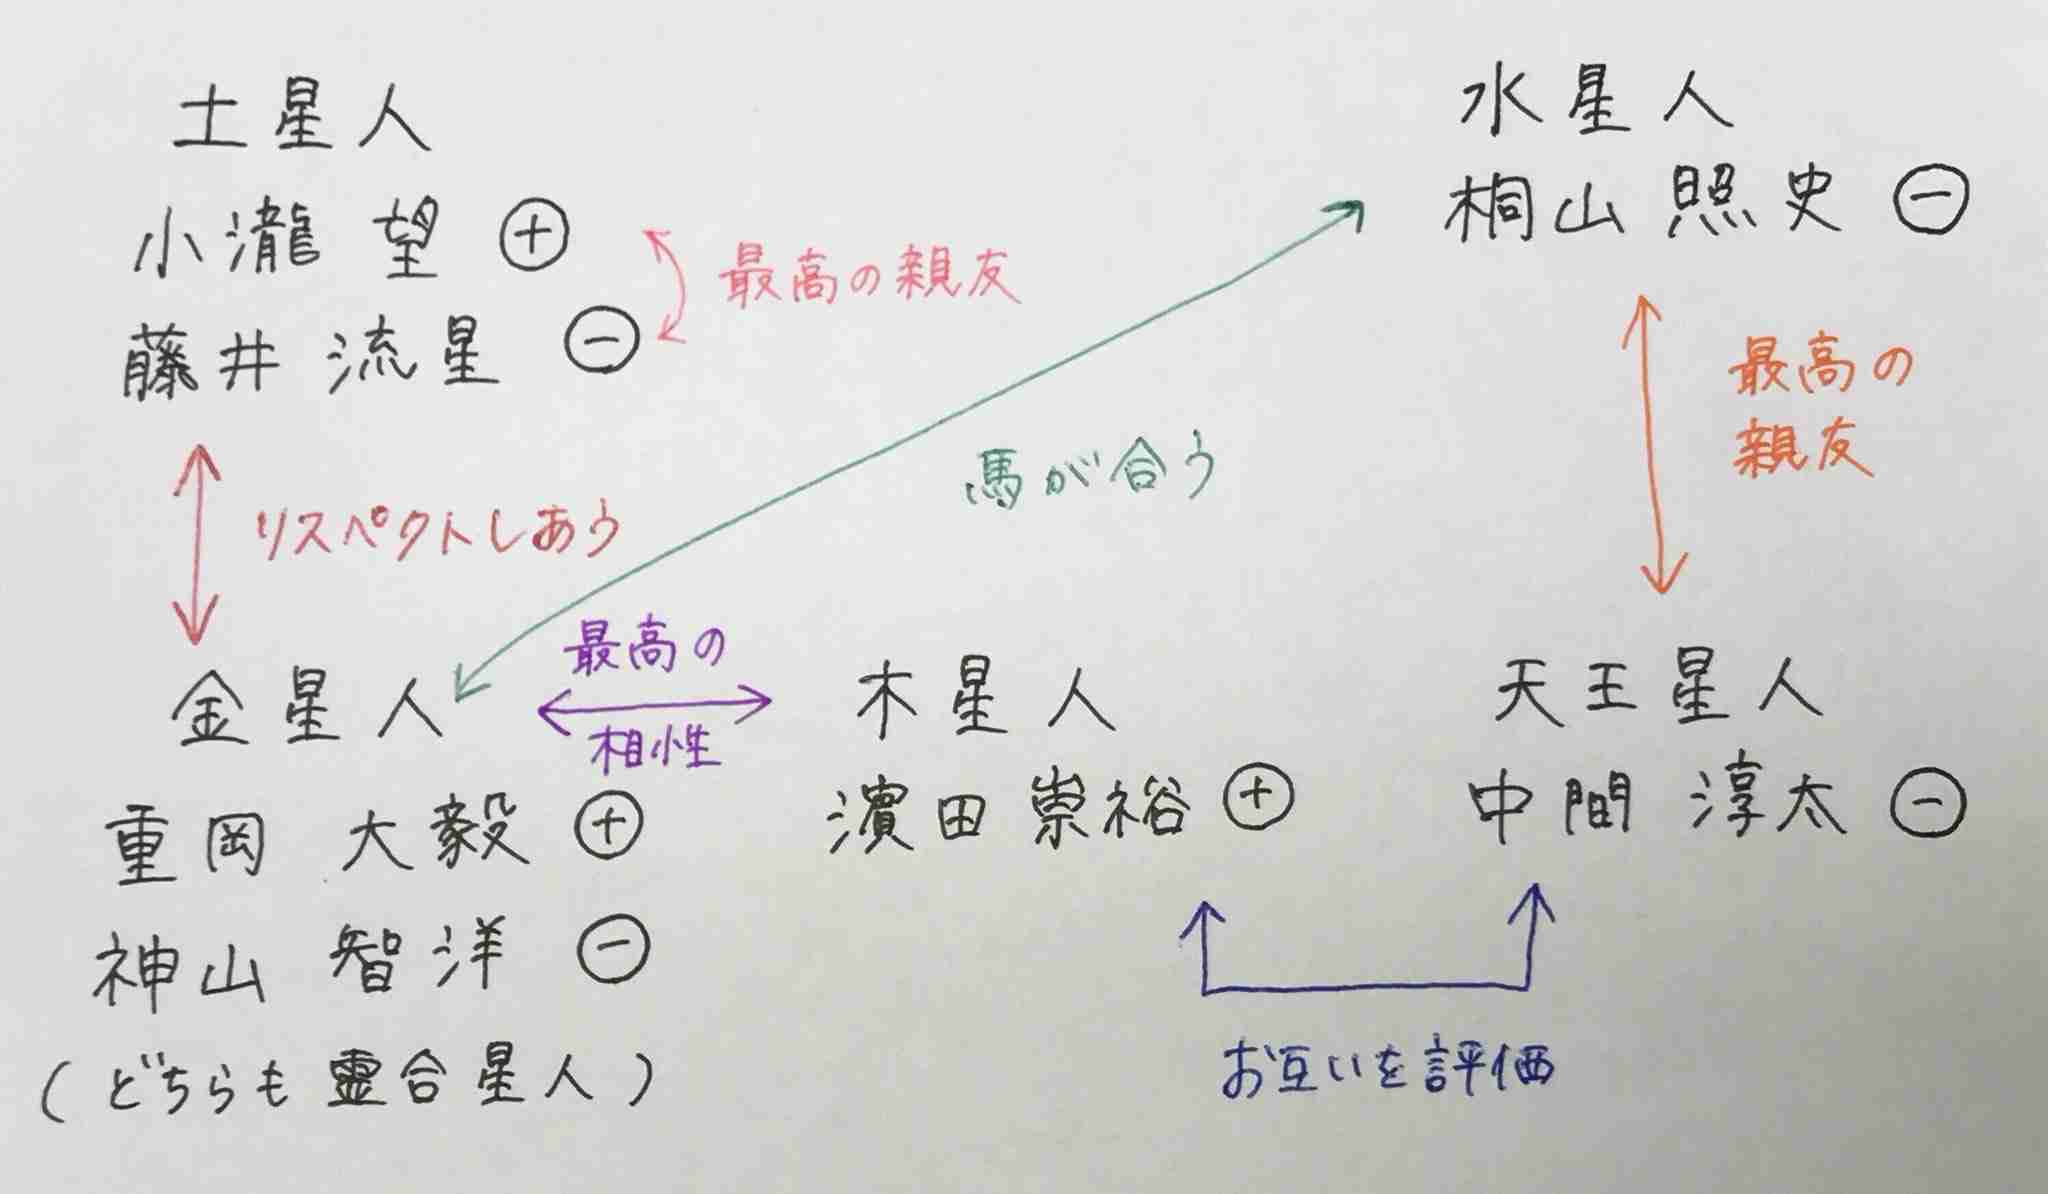 土星人
小瀧 望 ⊕
藤井 流星 ⊖
最高の親友
水星人
桐山 照史 ⊖
リスペクトしあう
馬が合う
最高の
親友
金星人
重岡 大毅 ⊕
神山 智洋 ⊖
(どちらも霊合星人)
最高の
相性
木星人
濵田 崇裕 ⊕
天王星人
中間 淳太 ⊖
お互いを評価